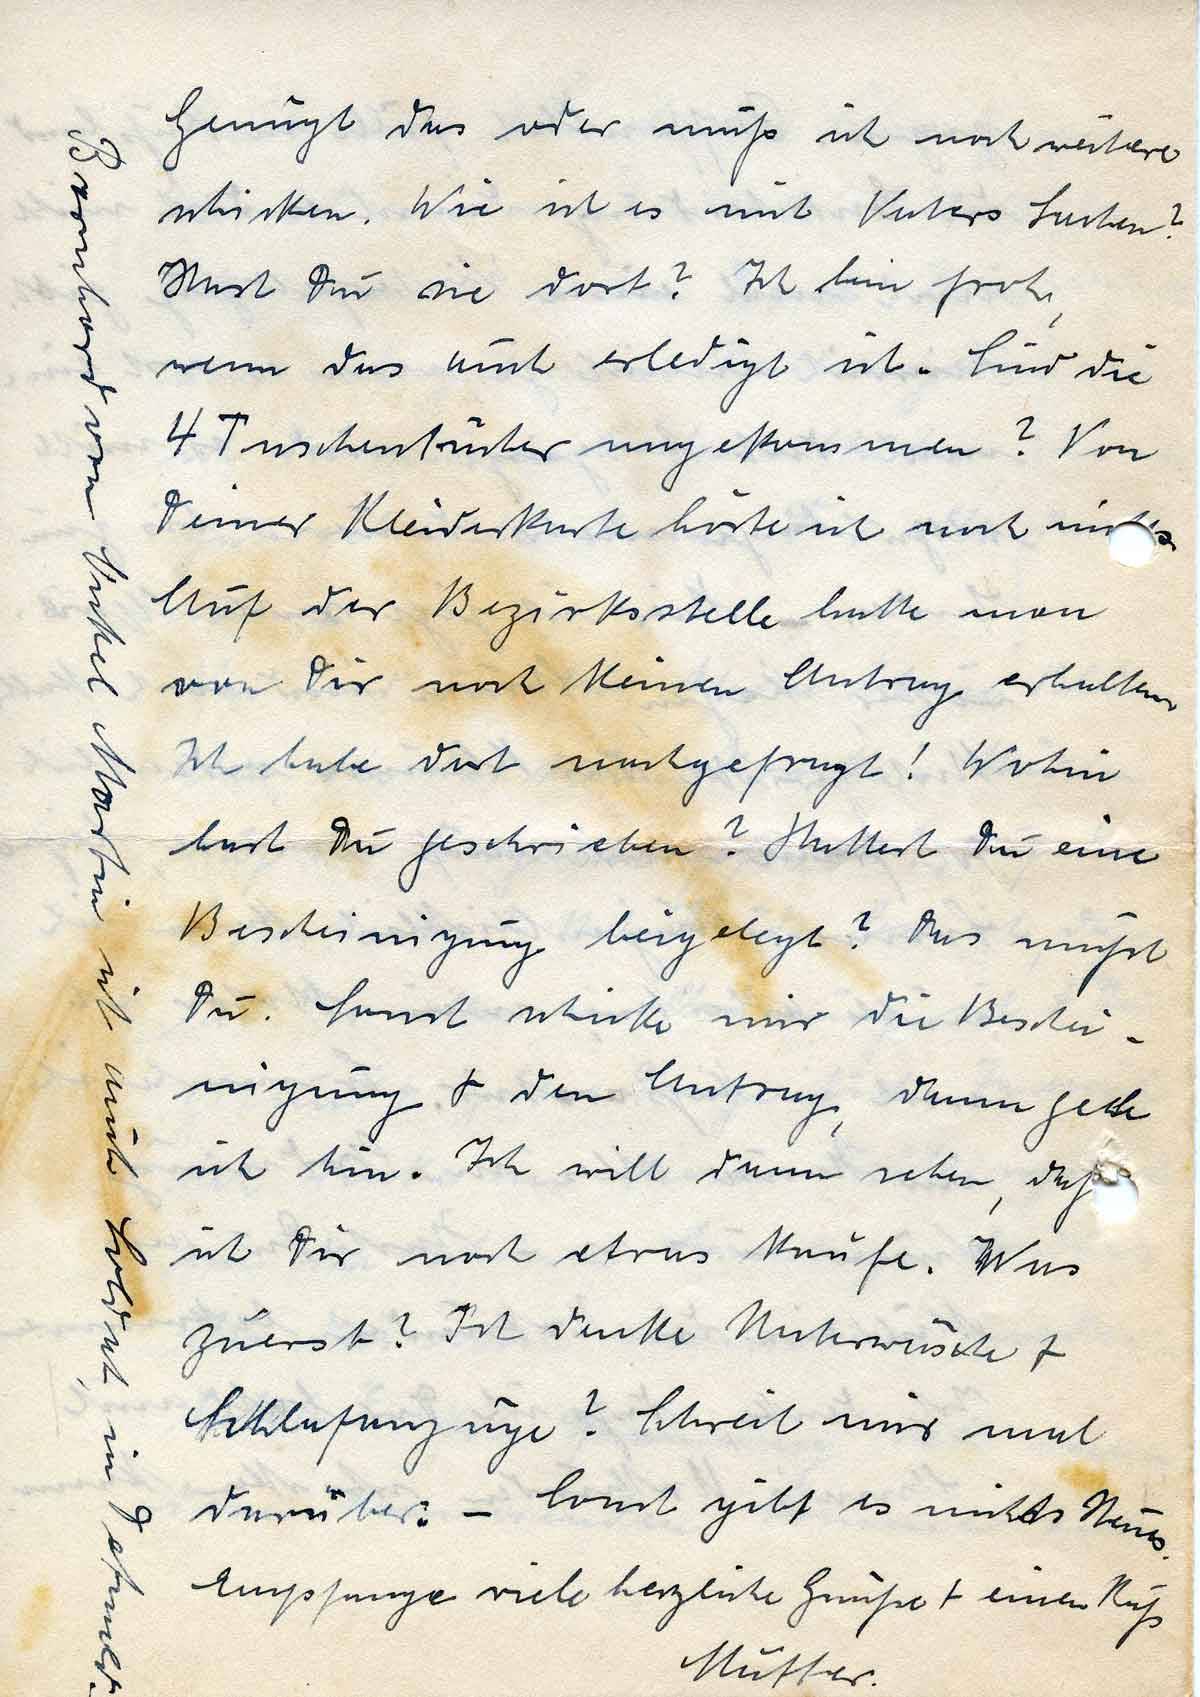 Genügt das oder muß ich noch weitere
schicken. Wie ist es mit Vaters Sachen?
Hast Du sie dort? Ich bin froh,
wenn das auch erledigt ist. Sind die
4 Taschentücher angekommen? Von
Deiner Kleiderkarte hörte ich noch nichts
Auf der Bezirksstelle hatte man
von Dir noch keinen Antrag erhalten
Ich habe dort nachgefragt! Wohin
hast Du geschrieben? Hattest Du eine
Bescheinigung beigelegt? Das mußt
Du. Sonst schicke mir die Beschei-
nigung & den Antrag, dann gehe
ich hin. Ich will dann sehen, daß
ich Dir noch etwas kaufe. Was
zuerst? Ich denke Unterwäsche &
Schlafanzüge? Schreib mir mal
darüber. – Sonst gibt es nichts Neues.
Empfange viele herzliche Grüße & einen Kuß
Mutter.
Bernhard von Onkel Martin ist auch Soldat, in Detmold.